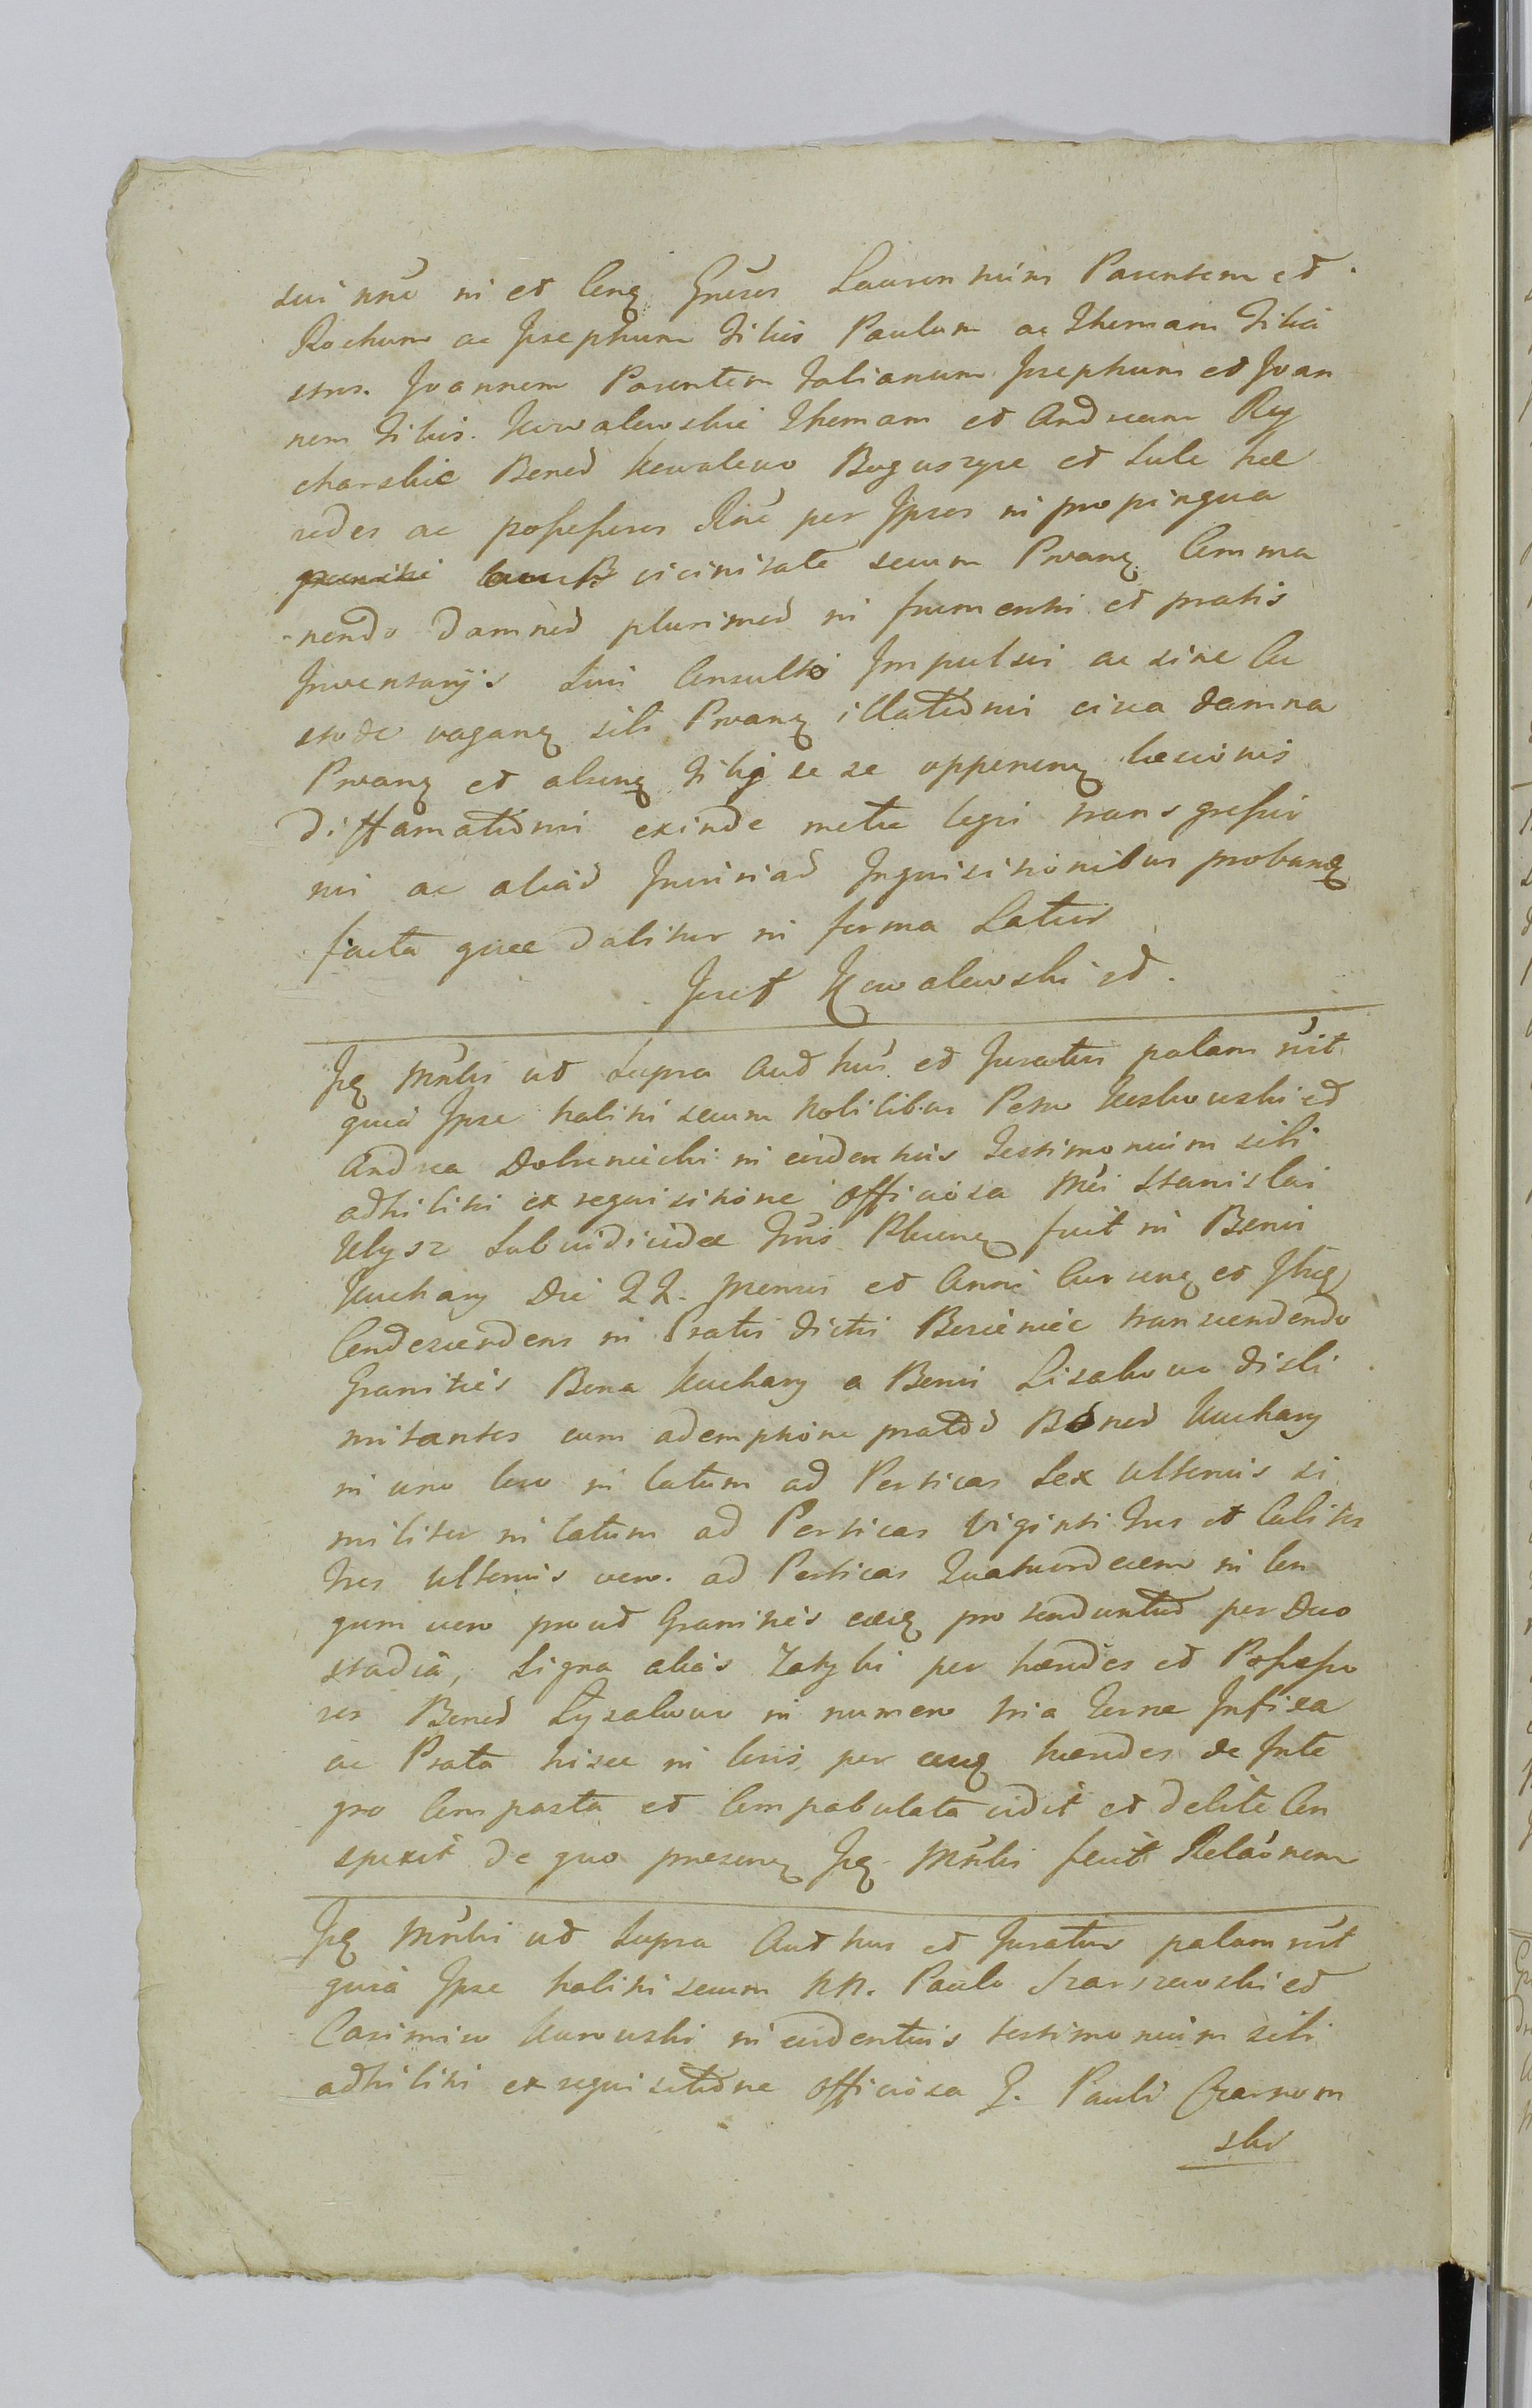 sui nne ni et Conq Gnesos Laurentium Parentem et
Rochum ac Josephum Filios Paulum ac Thomam Filiu
strus. Joannem Parentem Fabianum Josephum et Joan
nem Filios. Kowalewskie Thomam et Andream Ry
charskie Boned Kowalewo Boguszyce et Sule hae
redes ac possessores Rne per Ipsos in propinqua
vicinitate secum Prvanq Comma
nendo Damned plurimed in frumentis et pratis
Inventarys Sui Consulto Impulsu ac sine Cu
stode vaganq sibi Prvanq illationis circa damna
Prvanq et alienq Filij se se opponenq laesionis
Diffamationis exinde metu legis transgressio
nis ac aliad Iniuriad Inquisitionibus probanq
facta quae dabitur in forma Latius
Jozef Kowalewski et
Iq Mnlis ut Supra Authus et Juratus palam rcit
quia Ipse habitis secum Nobilibus Petro Koskowski et
Andrea Dobrnicki in evidentius Testimonium sibi
adhibitis ex requisitione Officiosa Mci Stanislai
Ulysz Subiudicidae Tnis Plunq fuit in Bonis
Kuchary Die 22. Mensis et Anni Curenq et Ibiq
Condescendens in Pratis dictis Bercieniec transcendendo
Granities Bona Kuchary a Bonis Lisakowo disli
mitantes cum ademptione pratod Boned Kuchary
in uno loco in latum ad Perticas Sex Ulterius si
militer in latum ad Perticas Viginti Tres et Cubitos
Tres Ulterius vero. ad Perticas Quatuordecem in lon
gum vero prout Granities eaeq protenduntur per Duo
stadia, Signa alias Zatyki per haeredes et Possesso
res Bonod Lysakowo in numero tria Terrae Infixa
ac Prata hisce in locis, per eosq haeredes de Inte
gro Compasta et Compabulata vidit et debite Con
spexit de quo praesenq Iq. Mnlis fecit Relaonem
Iq Mnlis ut Supra Authus et Juratus palam rcit
quia Ipse habitis secum NN. Paulo Szarszewski et
Casimiro Kurowski in evidentius testimonium sibi
adhibitis ex requisitione Officiosa G. Pauli Czarnom
ski